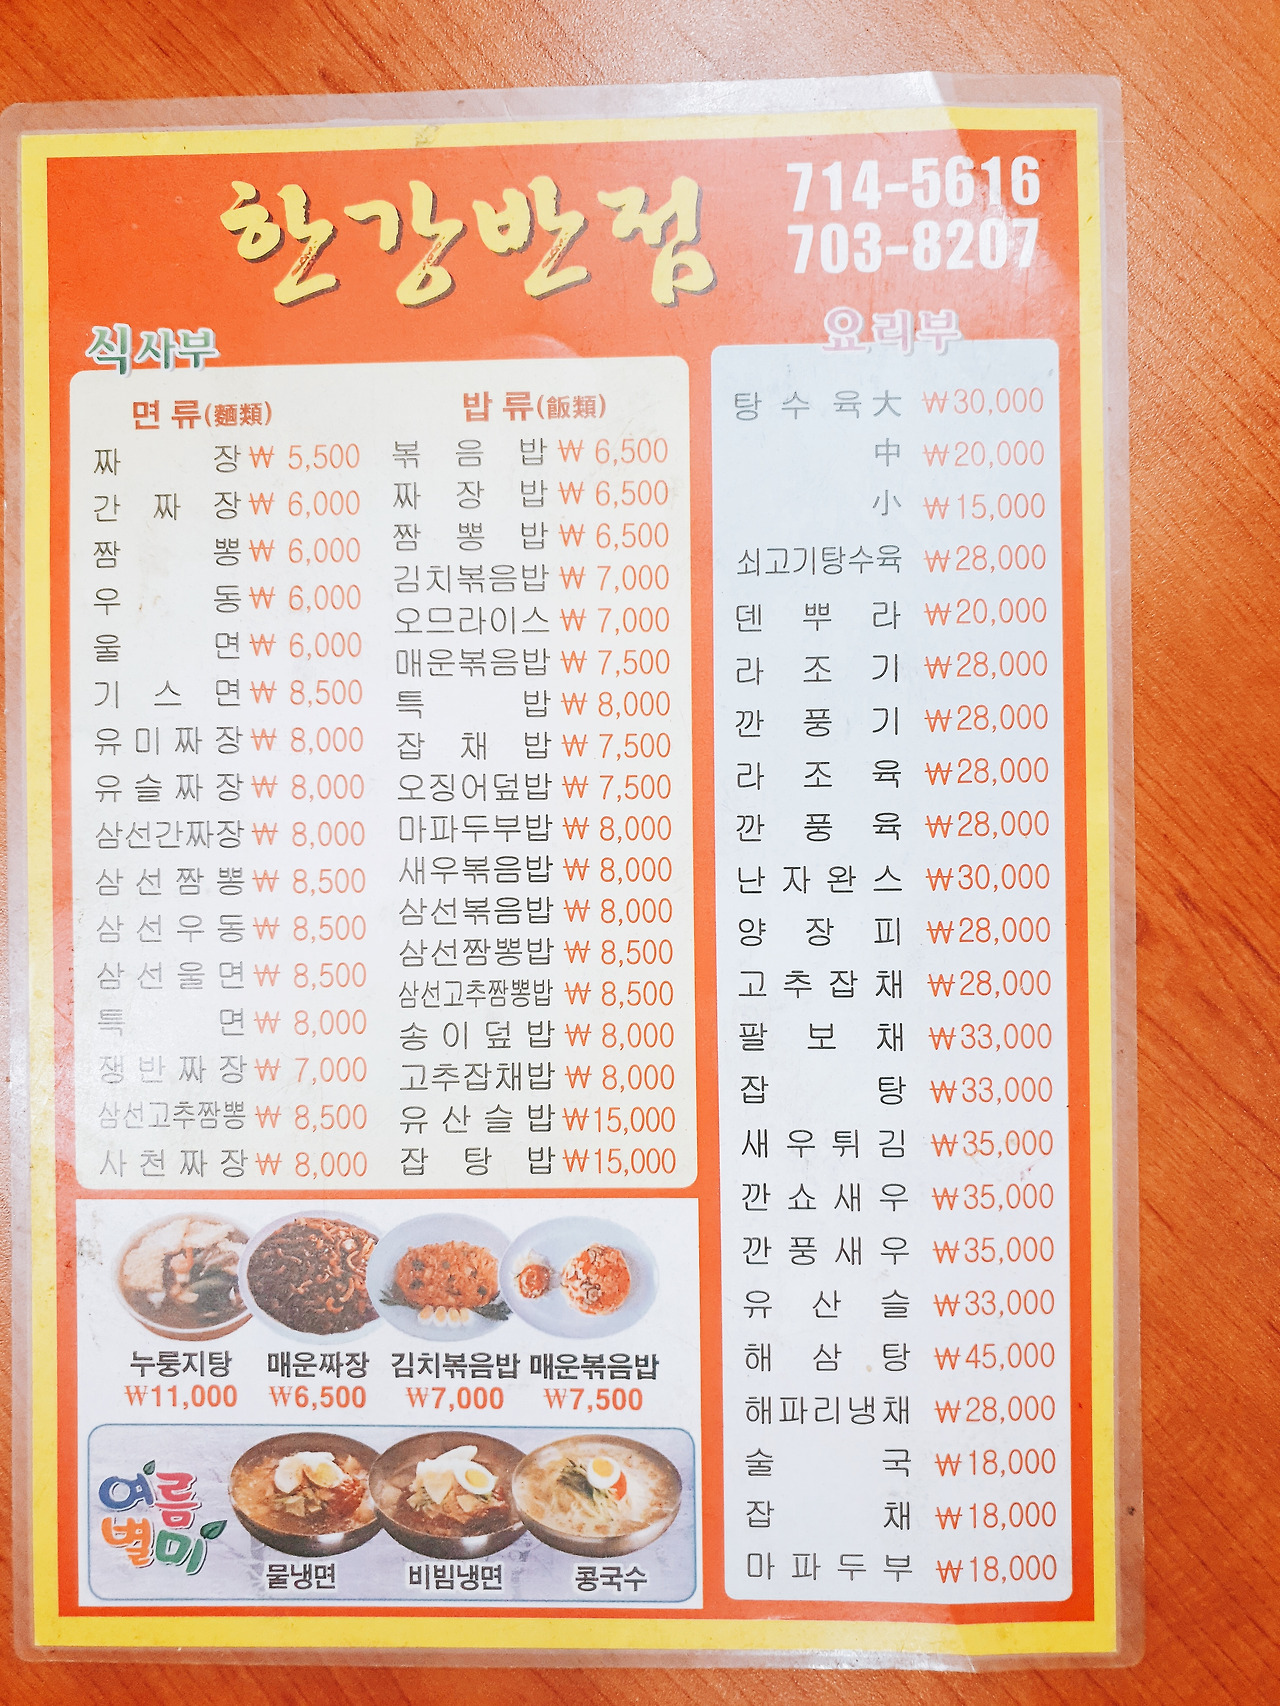 한강반점
714-5616
703-8207
식사부
면류(麵類)
짜장 ₩5,500
간짜장 ₩6,000
짬뽕 ₩6,000
우동 ₩6,000
울면 ₩6,000
기스면 ₩8,500
유미짜장 ₩8,000
유슬짜장 ₩8,000
삼선간짜장 ₩8,000
삼선짬뽕 ₩8,500
삼선우동 ₩8,500
삼선울면 ₩8,500
특면 ₩8,000
쟁반짜장 ₩7,000
삼선고추짬뽕 ₩8,500
사천짜장 ₩8,000
밥류(飯類)
볶음밥 ₩6,500
짜장밥 ₩6,500
짬뽕밥 ₩6,500
김치볶음밥 ₩7,000
오므라이스 ₩7,000
매운볶음밥 ₩7,500
특밥 ₩8,000
잡채밥 ₩7,500
오징어덮밥 ₩7,500
마파두부밥 ₩8,000
새우볶음밥 ₩8,000
삼선볶음밥 ₩8,000
삼선짬뽕밥 ₩8,500
삼선고추짬뽕밥 ₩8,500
송이덮밥 ₩8,000
고추잡채밥 ₩8,000
유산슬밥 ₩15,000
잡탕밥 ₩15,000
요리부
탕수육大 ₩30,000
中 ₩20,000
小 ₩15,000
쇠고기탕수육 ₩28,000
덴뿌라 ₩20,000
라조기 ₩28,000
깐풍기 ₩28,000
라조육 ₩28,000
깐풍육 ₩28,000
난자완스 ₩30,000
양장피 ₩28,000
고추잡채 ₩28,000
팔보채 ₩33,000
잡탕 ₩33,000
새우튀김 ₩35,000
깐쇼새우 ₩35,000
깐풍새우 ₩35,000
유산슬 ₩33,000
해삼탕 ₩45,000
해파리냉채 ₩28,000
술국 ₩18,000
잡채 ₩18,000
마파두부 ₩18,000
누룽지탕 매운짜장 김치볶음밥 매운볶음밥
₩11,000 ₩6,500 ₩7,000 ₩7,500
여름
별미
물냉면 비빔냉면 콩국수